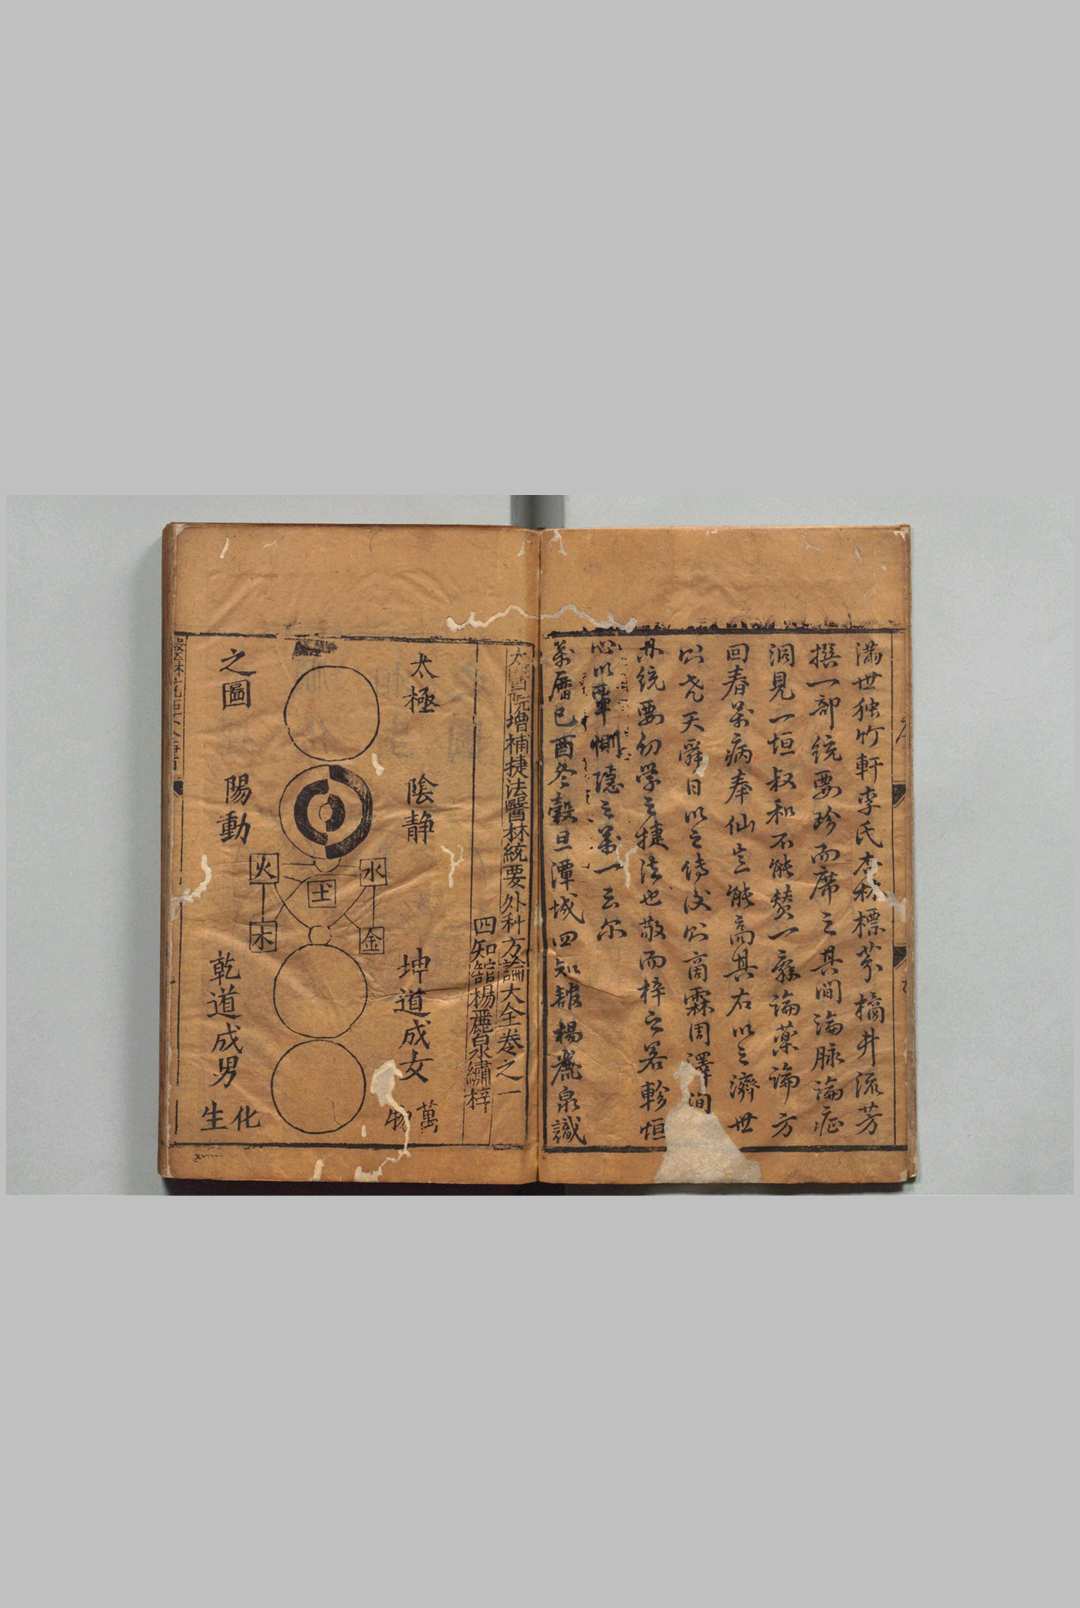 滿世独竹軒李氏杏林標芬橘井流芳
撰一部統要珍而席之其间論脉論症
洞見一垣叔和不能贊一辞論藥論方
回春萬病奉仙豈能高其右以之濟世
以尭天舜日以之傳汝則商霖周澤洵
統要初学之捷法也敬而梓之畧軫恒
心以車惻隱之萬一云尔
萬曆己酉冬穀旦潭城四知舘楊麗泉識
太醫院增補捷法醫林統要外科方論大全卷之一
四知舘楊麗泉繡梓
太極
之圖
陰静
陽動
水
火
土
金
木
坤道成女
乾道成男
萬物
化生